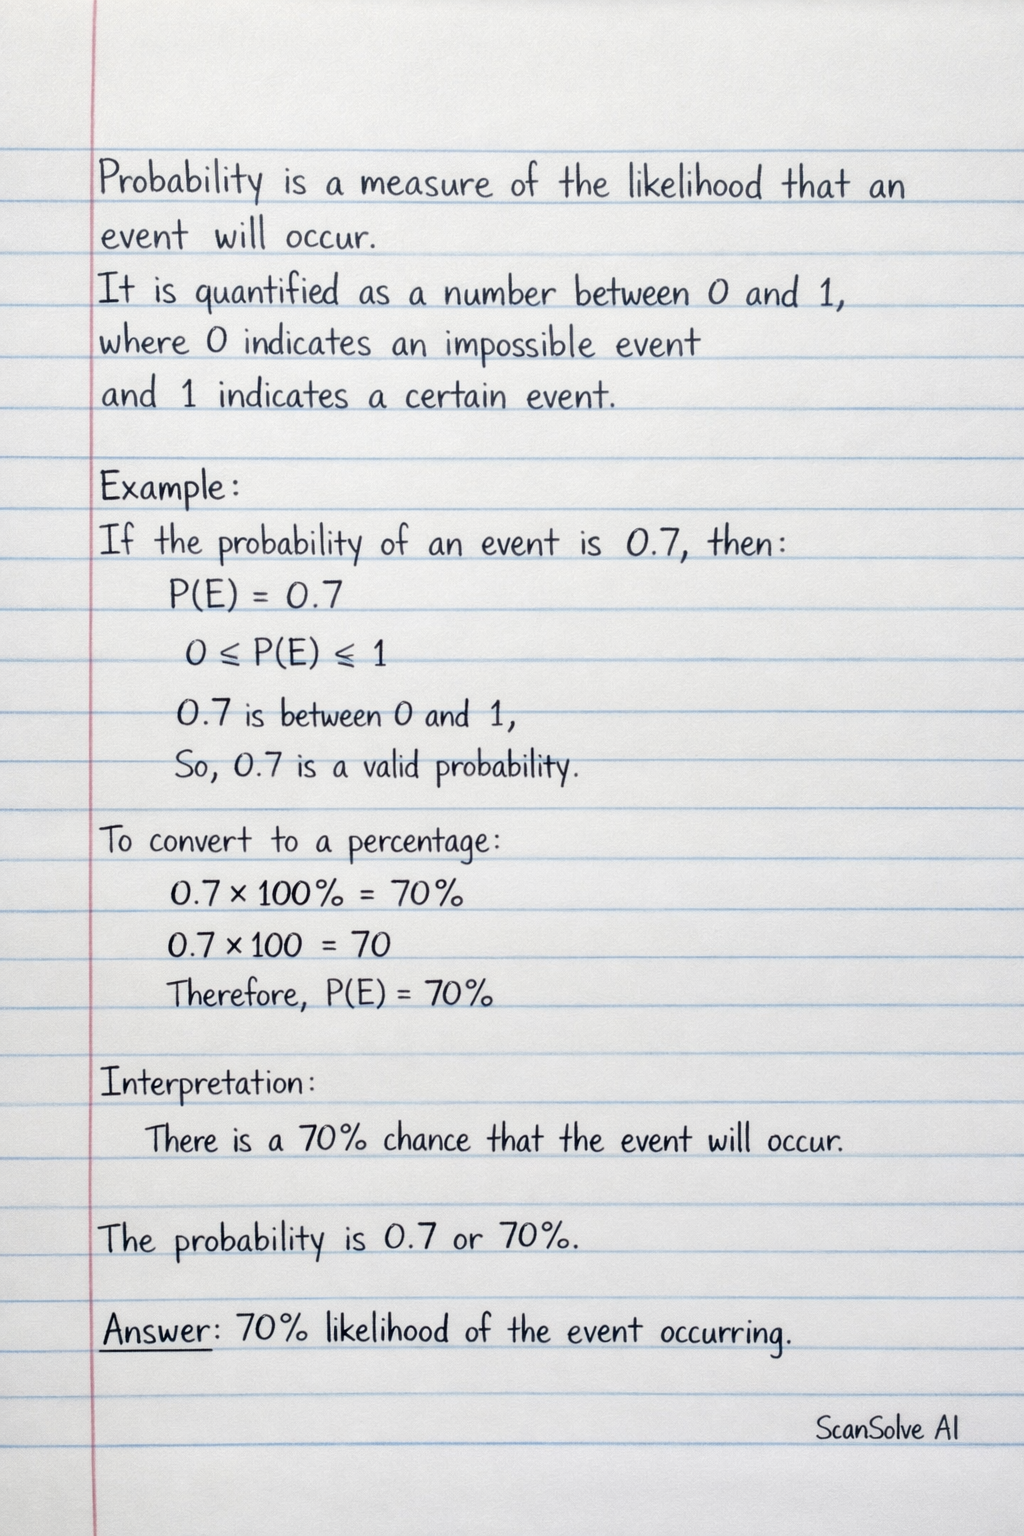 Probability is a measure of the likelihood that an
event will occur.
It is quantified as a number between 0 and 1,
where 0 indicates an impossible event
and 1 indicates a certain event.
Example:
If the probability of an event is 0.7, then:
P(E) = 0.7
0 ≤ P(E) ≤ 1
0.7 is between 0 and 1,
So, 0.7 is a valid probability.
To convert to a percentage:
0.7 × 100% = 70%
0.7 × 100 = 70
Therefore, P(E) = 70%
Interpretation:
There is a 70% chance that the event will occur.
The probability is 0.7 or 70%.
Answer: 70% likelihood of the event occurring.
ScanSolve AI